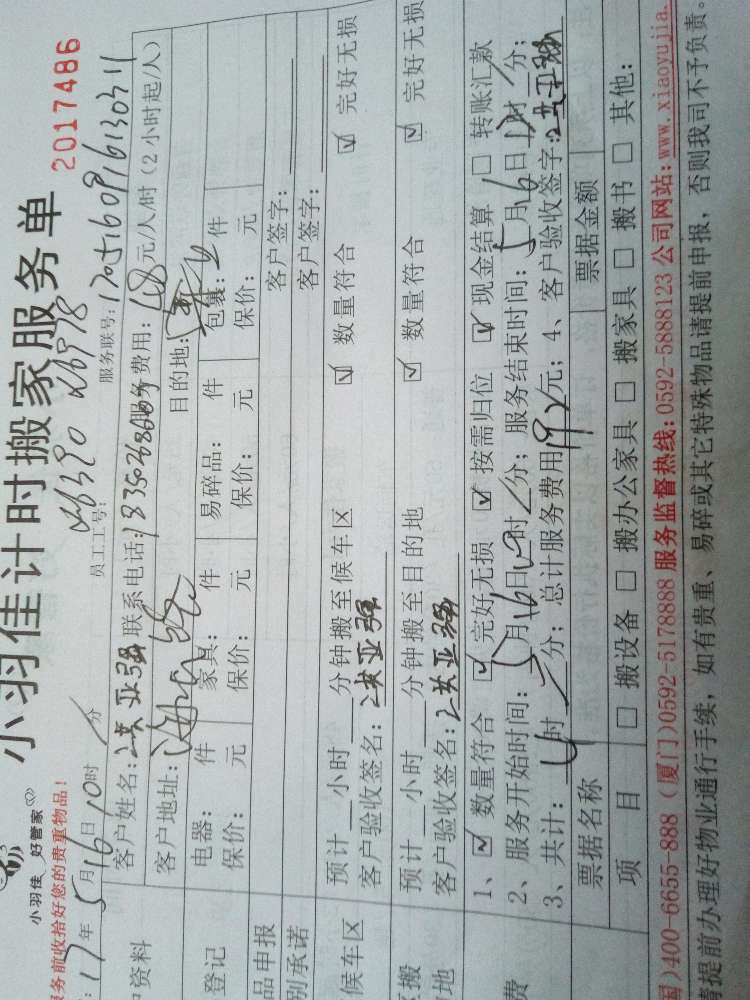 小羽佳计时搬家服务单
2017486
小羽佳 好管家
务前收拾好您的贵重物品!
17年5月16日10时 分
员工工号:
服务联号:1705160916130311
客户资料
客户姓名: 亚强 联系电话: 服务费用:48元/人/时(2小时起/人)
客户地址: 目的地:
登记
电器: 件 家具: 件 易碎品: 件 包裹: 件
保价: 元 保价: 元 保价: 元 保价: 元
品申报
客户签字:
别承诺
客户签字:
候车区
预计 小时 分钟搬至候车区 ☑ 数量符合 ☑ 完好无损
客户验收签名: 亚强
搬 地
预计 小时 分钟搬至目的地 ☑ 数量符合 ☑ 完好无损
客户验收签名: 亚强
费
1、☑ 数量符合 ☑ 完好无损 ☑ 按需归位 ☑ 现金结算 □ 转账汇款
2、服务开始时间:5月16日10时 分;服务结束时间:5月16日 时 分;
3、共计:4时 分;总计服务费用192元;4、客户验收签字: 亚强
票据名称 票据金额
项 目 □ 搬设备 □ 搬办公家具 □ 搬家具 □ 搬书 □ 其他:
国)400-6655-888 (厦门)0592-5178888 服务监督热线:0592-5888123 公司网站:www.xiaoyujia.
请提前办理好物业通行手续,如有贵重、易碎或其它特殊物品请提前申报,否则我司不予负责。